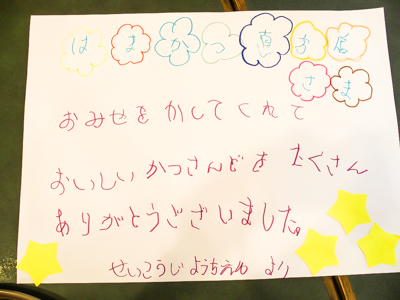 はまかつ直お店
さま
おみせを かしてくれて
おいしい かつさんどを たくさん
ありがとうございました。
せいこうじ ようちえん より